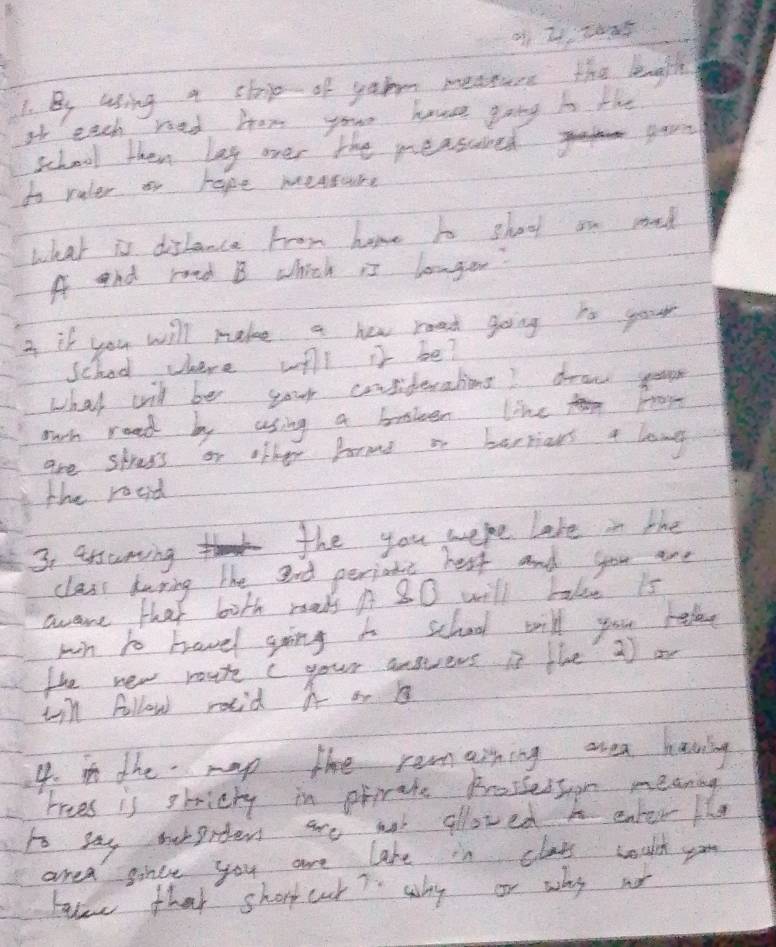 1. By using a strip of yarn measure the length
of each road from your house going to the
school then lay over the measured yarn
to ruler or tape measure
what is distance from home to shool on road
A and road B which is longer?
2, if you will make a new road going to your
school where will it be?
what will be your considerations? draw your
own road by using a broken line from
are stress or other forms or barriers a long
the rocid
3, assuming the you were late in the
class during the 3rd periodic test and you are
aware that both roads A & B will take 15
min to travel going to school will you take
the new route ( your answers is the 2) or
will follow rocid A or B
4. in the map the remaining area having
trees is stricty in private Prossession meaning
to say outsiders are not allowed to enter the
area since you are late in class would you
take that short cut? why or why not